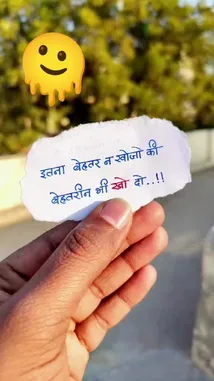 इतना बेहतर न खोजो की
बेहतरीन भी खो दो..!!